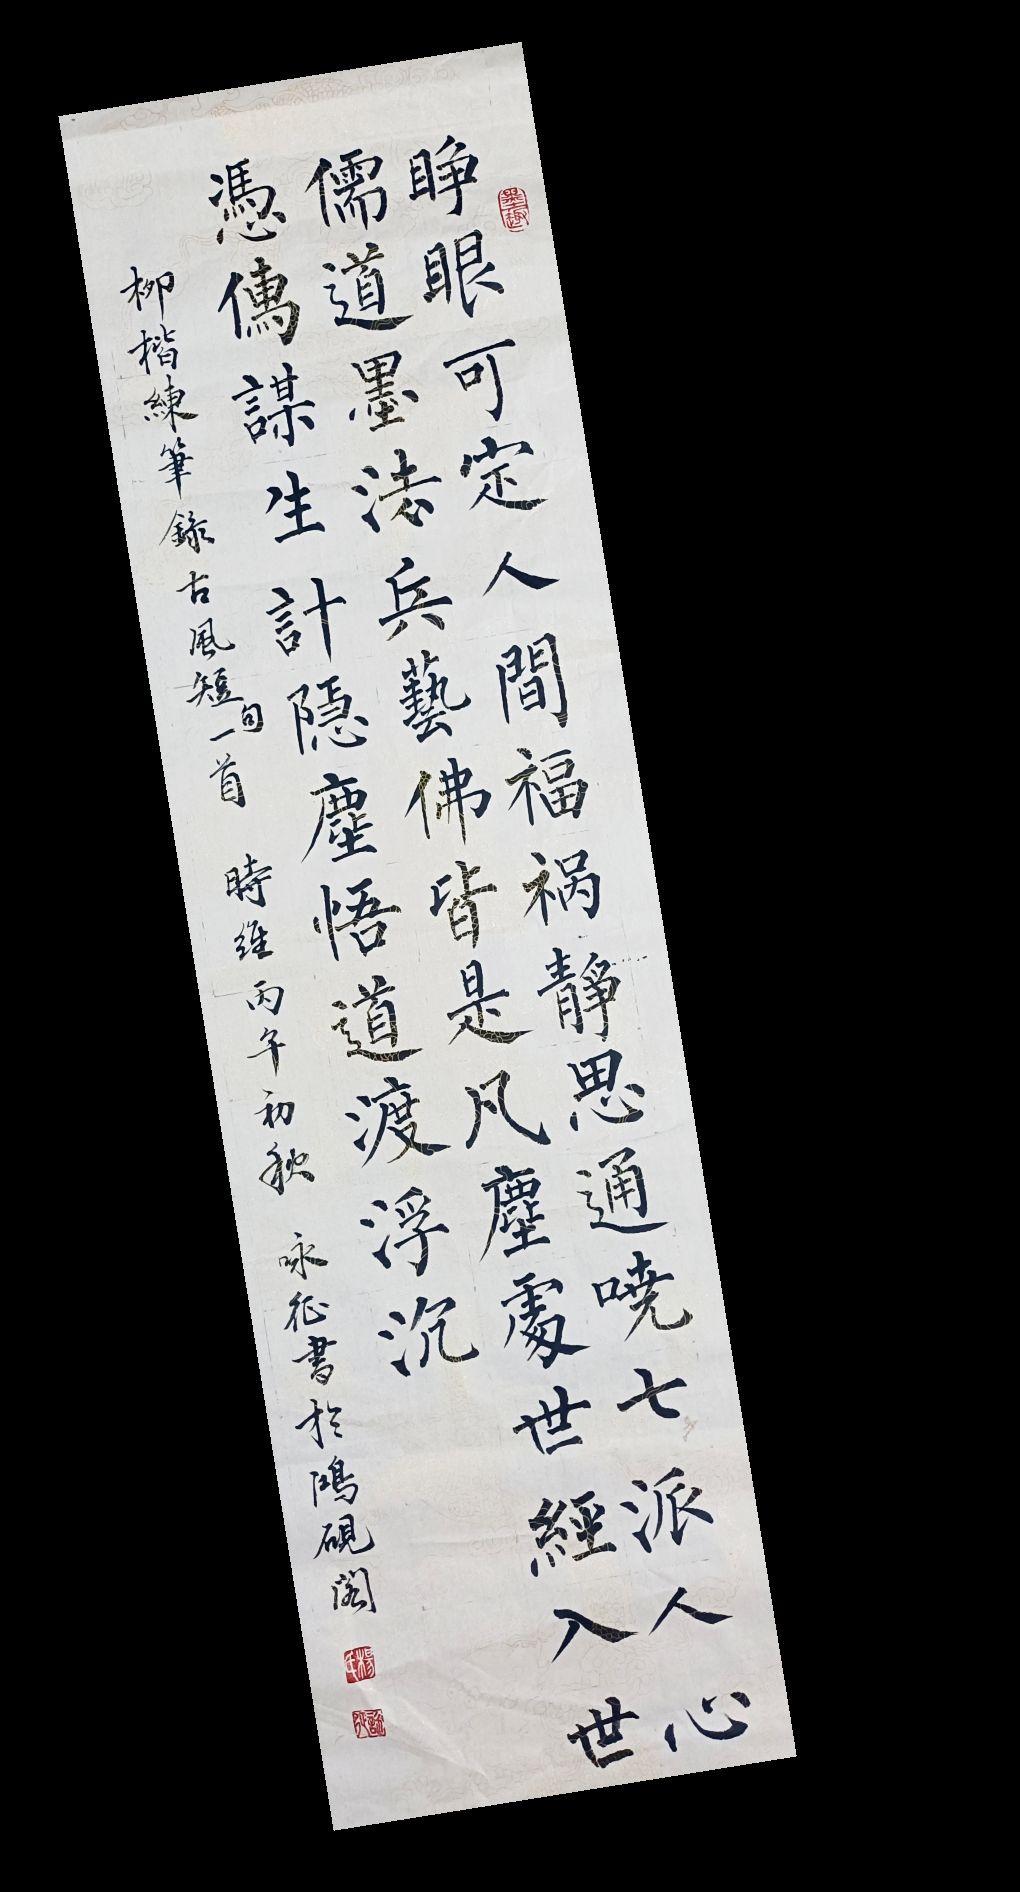 睁眼可定人間福祸靜思通嘵七派人心
儒道墨法兵藝佛皆是凡塵處世經入世
憑儁謀生計隐塵悟道渡浮沉
柳楷練筆錄古風短句一首 時維丙午初秋 咏征書於鴻硯閣
墨趣